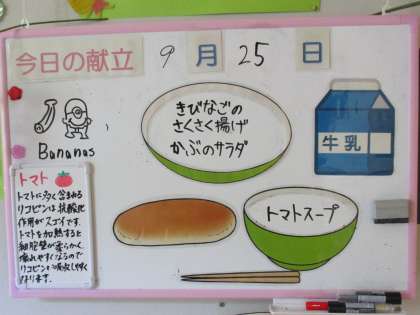 今日の献立 9月25日
きびなごの
さくさく揚げ
かぶのサラダ
牛乳
Bananas
トマト
トマトに多く含まれる
リコピンは抗酸化
作用がスゴイです。
トマトを加熱すると
細胞壁が柔らかく
壊れやすくなるので
リコピンを吸収しやすく
なります。
トマトスープ